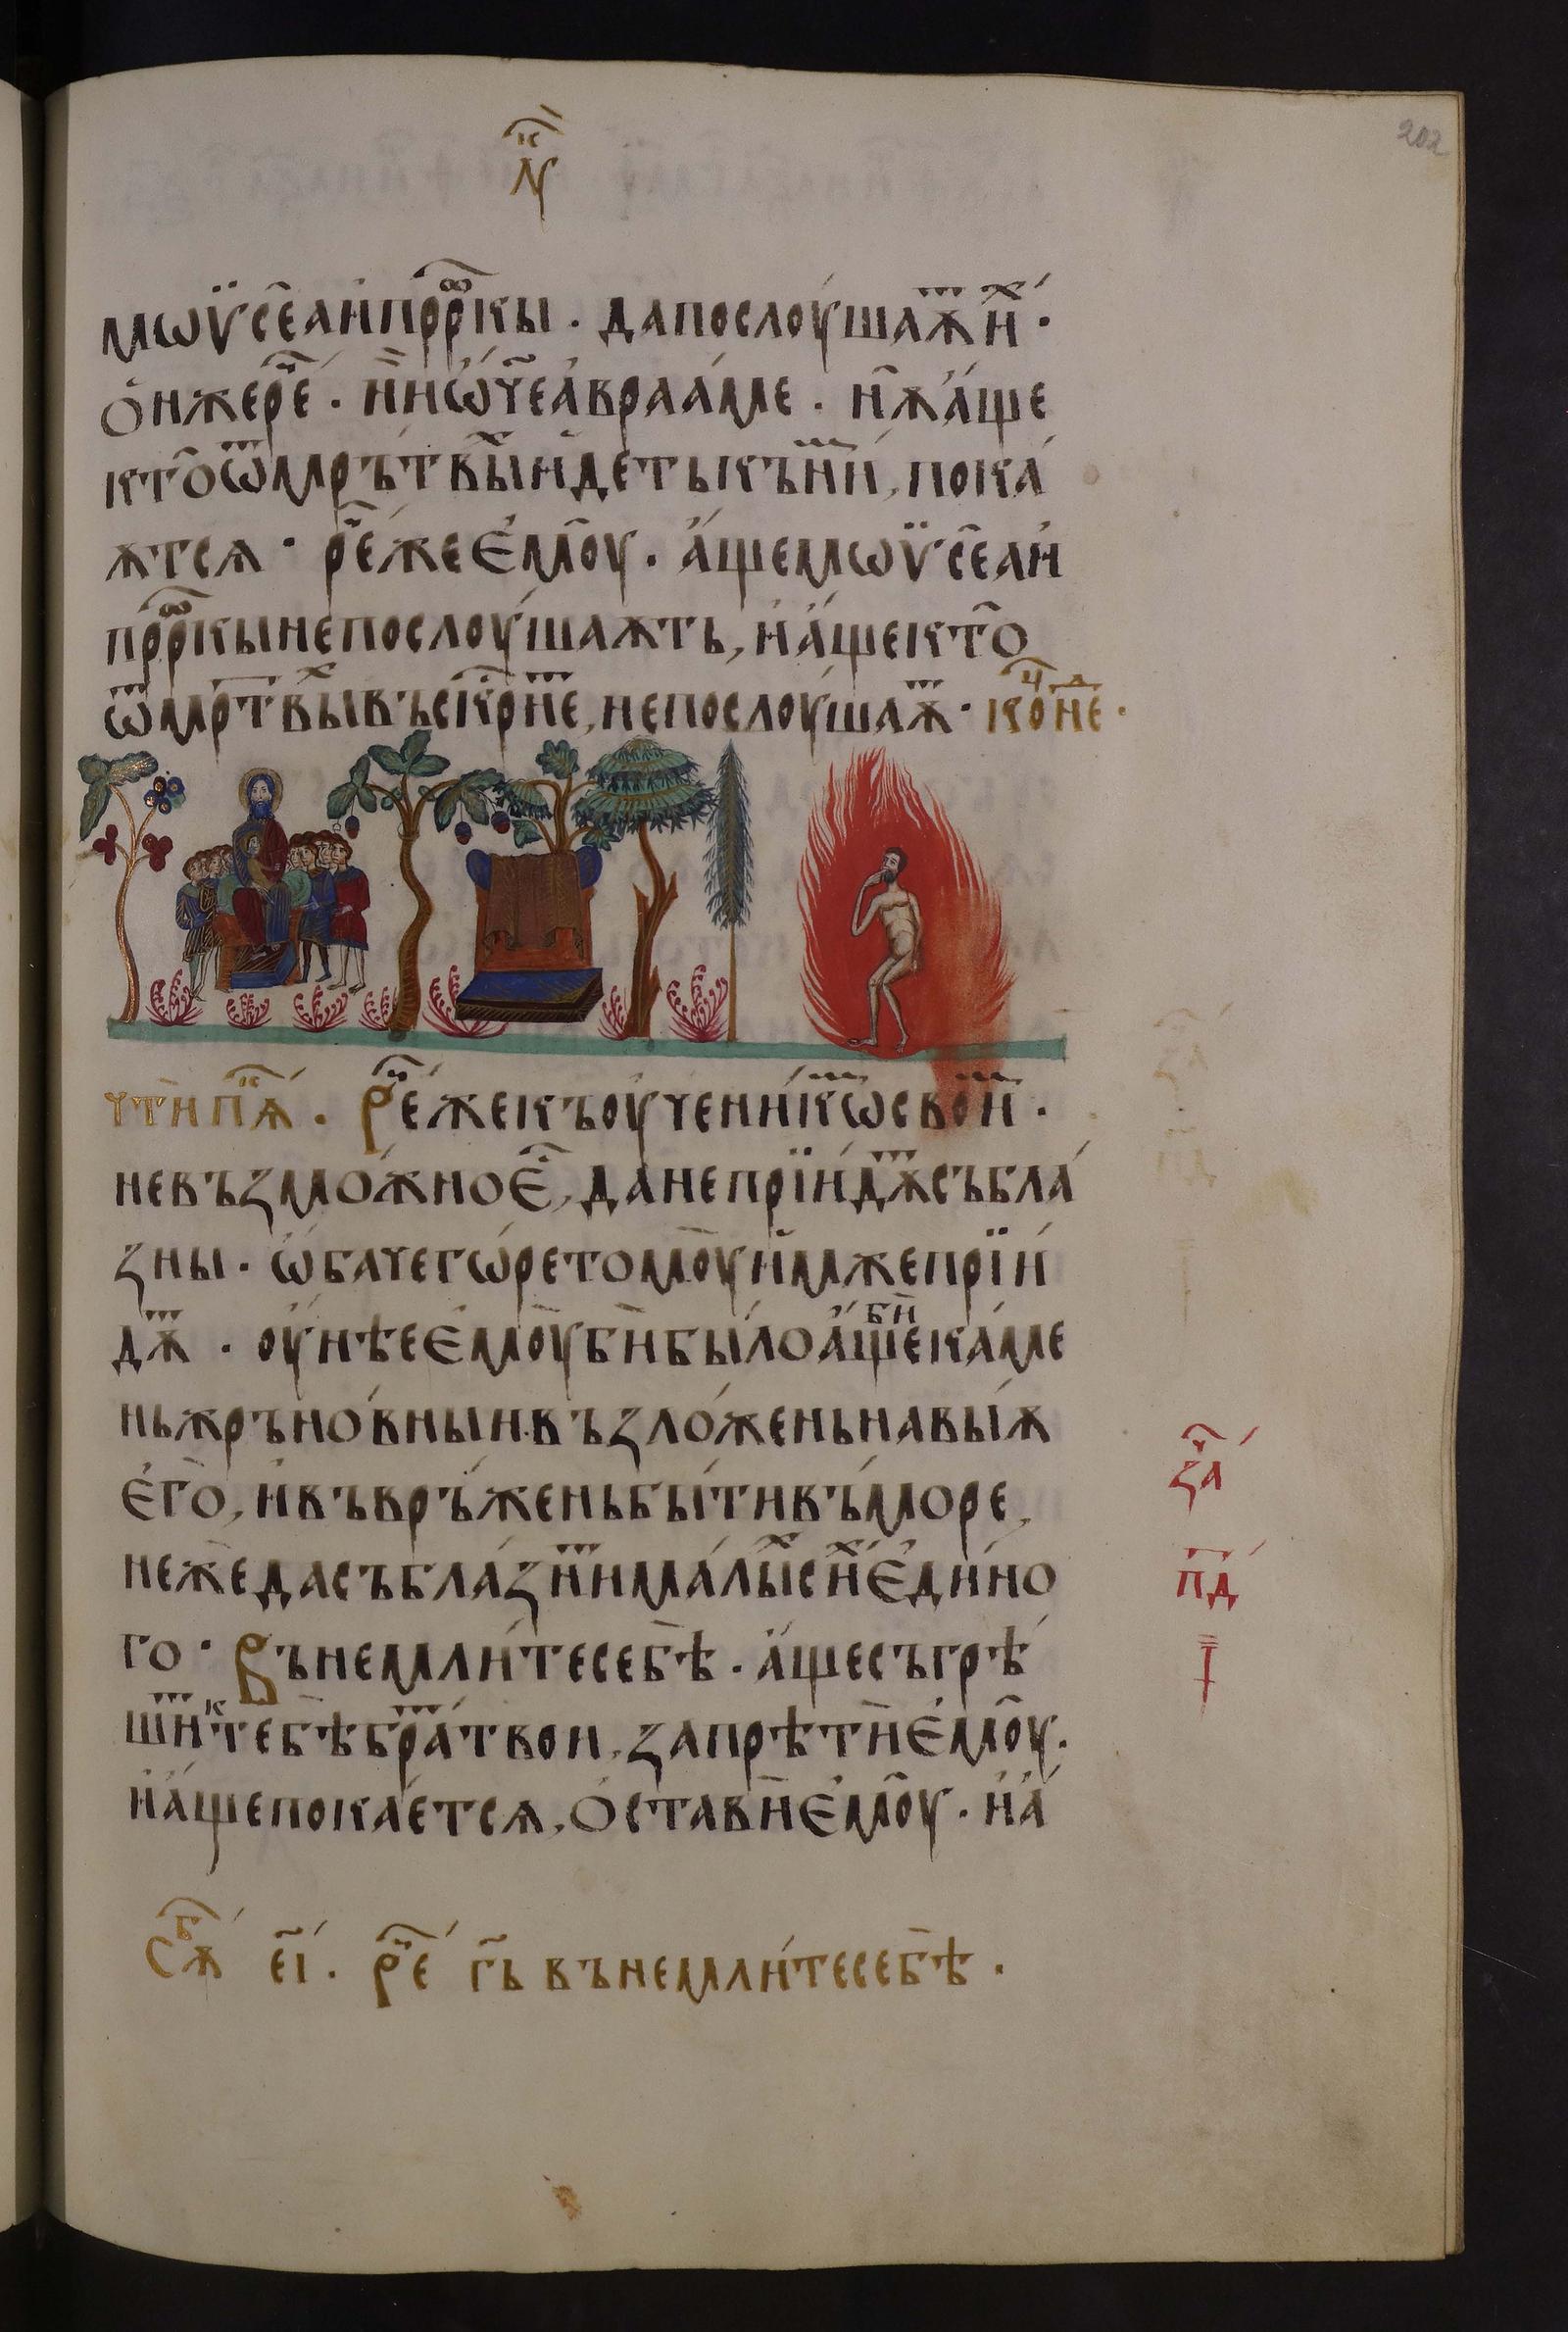 202
мѡѷсеа и прⷪ҇ркы · да послоушаѫⷮ иⷯ ·
ѻнже реⷱ҇ · ни ѡч҃е авраамме · нѫ аще
кто ѿ мрътвыⷯ идеть къ ниⷨ, пока
ѫтсѧ · реⷱ҇ же ємоу · аще мѡѷсеа и
прⷪ҇ркы не послоушаѫть, и аще кто
ѿ мрⷮвыⷯ въскрⷭ҇неⷮ, не послоушаѫⷮ · конеⷰ҇ ·
реⷱ҇ же къ оученикѡⷨ своиⷨ ·
невъзможно єⷭ҇, да не прїидѫⷮ събла
зны · ѡбаче горе томоу имже прїи
дѫⷮ · оунѣе ємоу би было аще би каме
нь жръновныи възложень на выѫ
єго, и въвръжень быти въ море,
неже да съблазниⷮ малыⷯ сиⷯ єдино
го · Вънемлите себѣ · аще съгрѣ
шиⷮ к тебѣ браⷮ твои, запрѣти ємоу ·
и аще покаетсѧ, ѻстави ємоу · и а
заⷱ҇
пд
сѫⷠ҇ еі · реⷱ҇ гь вънемлите себѣ ·